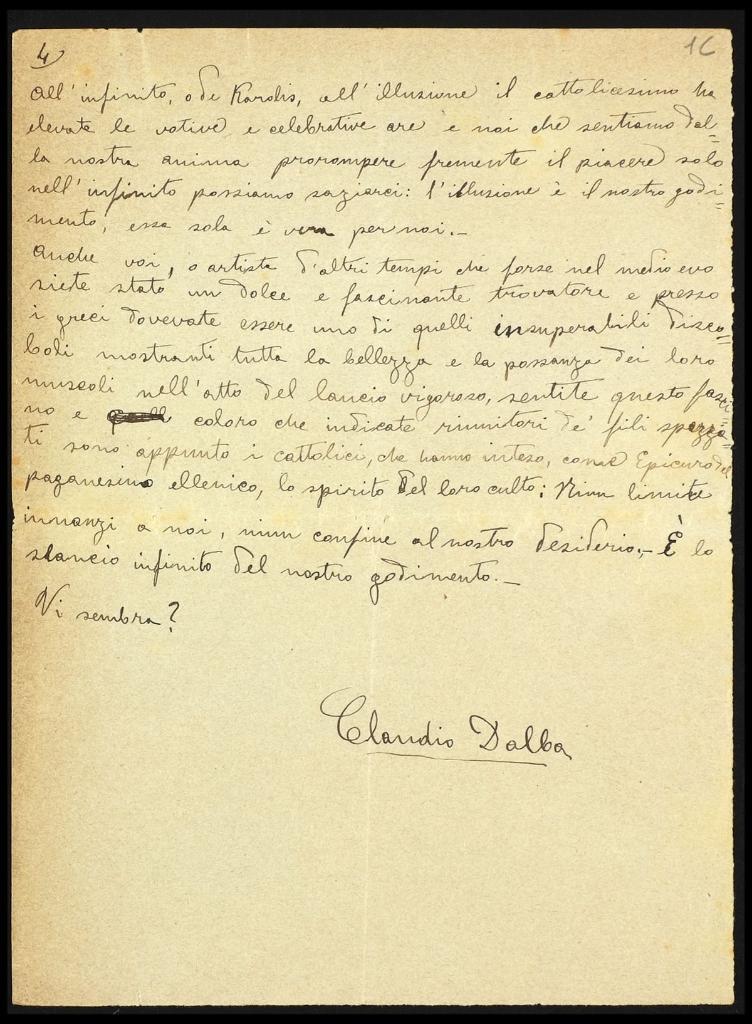 4
1C
All' infinito, o de Karolis, all' illusione il cattolicesimo ha
elevate le votive e celebrative are e noi che sentiamo dal=
la nostra anima prorompere fremente il piacere solo
nell' infinito possiamo saziarci: l' illusione è il nostro godi=
mento, essa sola è vera per noi. –
Anche voi, o artista d' altri tempi che forse nel medio evo
siete stato un dolce e fascinante trovatore e presso
i greci dovevate essere uno di quelli insuperabili disco=
boli mostranti tutta la bellezza e la possanza dei loro
muscoli nell' atto del lancio vigoroso, sentite questo fasci=
no e coloro che indicate riunitori de' fili spezza=
ti sono appunto i cattolici, che hanno inteso, come Epicuro del
paganesimo ellenico, lo spirito del loro culto: Niun limite
innanzi a noi, niun confine al nostro desiderio. – È lo
slancio infinito del nostro godimento. –
Vi sembra?
Claudio Dalba